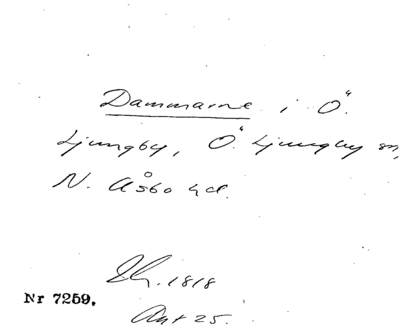 Dammarne i Ö.
Ljungby, Ö. Ljungby sn,
N. Åsbo hd.
1818
Nr 7259.
Akt 25.